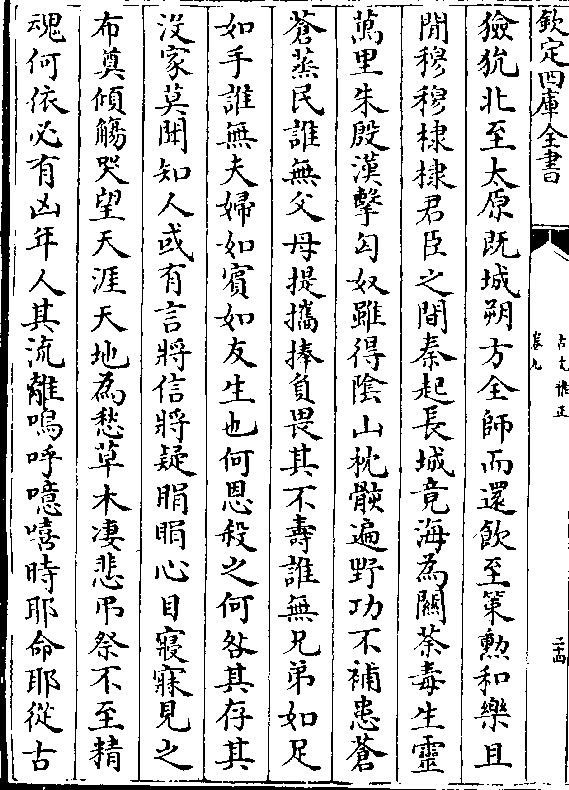 欽定四庫全書
古文雅正
卷九
二十四
獫狁北至太原既城朔方全師而還飲至策勲和樂且
閒穆穆棣棣君臣之間秦起長城竟海為關荼毒生靈
萬里朱殷漢擊匈奴雖得陰山枕骸遍野功不補患蒼
蒼蒸民誰無父母提攜捧負畏其不壽誰無兄弟如足
如手誰無夫婦如賓如友生也何恩殺之何咎其存其
没家莫聞知人或有言將信將疑悁悁心目寢寐見之
布奠傾觴哭望天涯天地為愁草木凄悲弔祭不至精
魂何依必有凶年人其流離嗚呼噫嘻時耶命耶從古